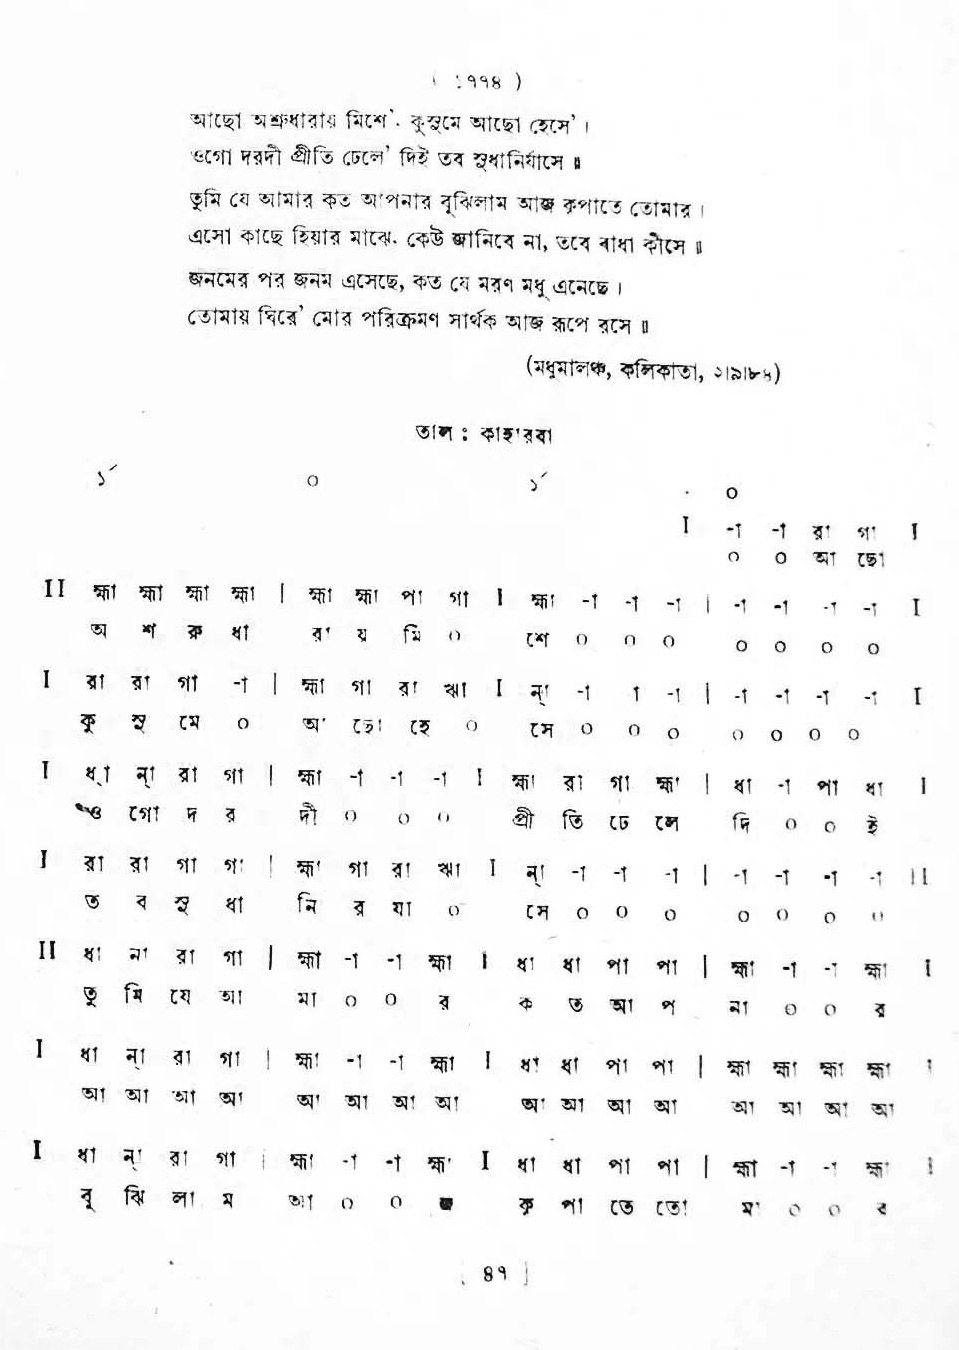 ( ১৭৭৪ )
আছো অশ্রুধারায় মিশে'. কুসুমে আছো হেসে' ।
ওগো দরদী প্রীতি ঢেলে' দিই তব সুধানির্যাসে ॥
তুমি যে আমার কত আপনার বুঝিলাম আজ কৃপাতে তোমার ।
এসো কাছে হিয়ার মাঝে. কেউ জানিবে না, তবে বাধা কীসে ॥
জনমের পর জনম এসেছে, কত যে মরণ মধু এনেছে ।
তোমায় ঘিরে' মোর পরিক্রমণ সার্থক আজ রূপে রসে ॥
(মধুমালঞ্চ, কলিকাতা, ২।৯।৮৪)
তাল : কাহারবা
১´ ০ ১´ ০
I -া -া রা গা I
০ ০ আ ছো
II হ্মা হ্মা হ্মা হ্মা | হ্মা হ্মা পা গা I হ্মা -া -া -া | -া -া -া -া I
অ শ রু ধা রা য় মি ০ শে ০ ০ ০ ০ ০ ০ ০
I রা রা গা -া | হ্মা গা রা ঋা I ন্া -া া -া | -া -া -া -া I
কু সু মে ০ আ ছো হে ০ সে ০ ০ ০ ০ ০ ০ ০
I ধ্া ন্া রা গা | হ্মা -া -া -া I হ্মা রা গা হ্মা | ধা -া পা ধা I
ও গো দ র দী ০ ০ ০ প্রী তি ঢে লে দি ০ ০ ই
I রা রা গা গা | হ্মা গা রা ঋা I ন্া -া -া -া | -া -া -া -া II
ত ব সু ধা নি র যা ০ সে ০ ০ ০ ০ ০ ০ ০
II ধা না রা গা | হ্মা -া -া হ্মা I ধা ধা পা পা | হ্মা -া -া হ্মা I
তু মি যে আ মা ০ ০ র ক ত আ প না ০ ০ র
I ধা ন্া রা গা | হ্মা -া -া হ্মা I ধা ধা পা পা | হ্মা হ্মা হ্মা হ্মা I
আ আ আ আ আ আ আ আ আ আ আ আ আ আ আ আ
I ধা ন্া রা গা | হ্মা -া -া হ্মা I ধা ধা পা পা | হ্মা -া -া হ্মা I
বু ঝি লা ম আ ০ ০ জ কৃ পা তে তো মা ০ ০ র
[ ৪৭ ]